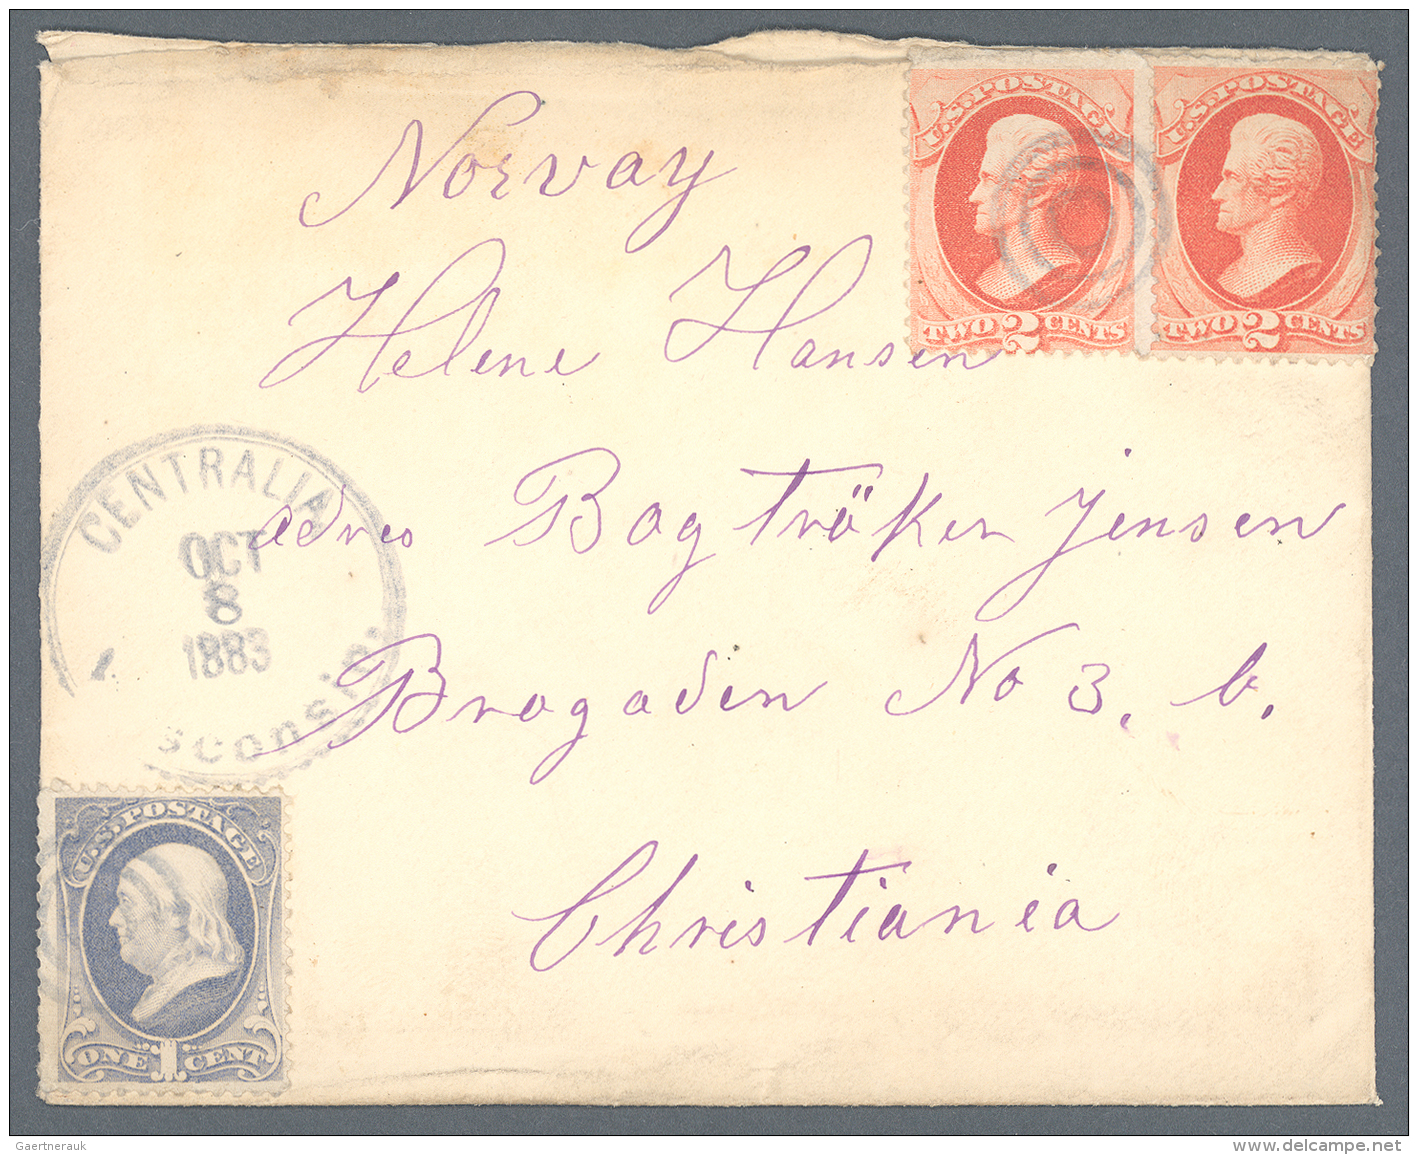 Norvay
U.S. POSTAGE
TWO 2 CENTS
U.S. POSTAGE
TWO 2 CENTS
Helene Hansen
CENTRALIA
OCT
8
1883
sconsin.
adres Bogtröker Jensen
Brogaden No 3. b.
Christiania
U.S. POSTAGE
ONE 1 CENT
Gaertnerauk
www.delcampe.net